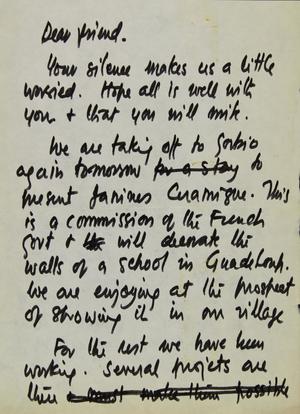 Dear friend.
Your silence makes us a little
worried. Hope all is well with
you & that you will write.
We are taking off to Gorbio
again tomorrow for a stay to
present Janines Ceramique. This
is a commission of the French
Govt & will decorate the
walls of a school in Guadeloup.
We are enjoying at the prospect
of showing it in our village
For the rest we have been
working. Several projets are
there must make them possible